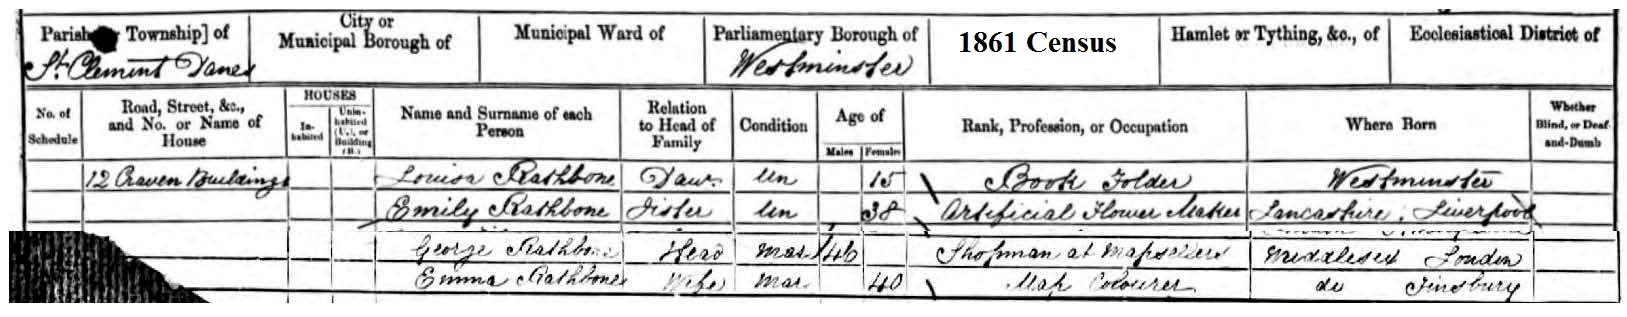 Parish [or Township] of
St. Clement Danes
City or
Municipal Borough of
Municipal Ward of
Parliamentary Borough of
Westminster
1861 Census
Hamlet or Tything, &c., of
Ecclesiastical District of
No. of
Schedule
Road, Street, &c.,
and No. or Name of
House
HOUSES
In-
habited
Unin-
habited
(U.), or
Building
(B.)
Name and Surname of each
Person
Relation
to Head of
Family
Condition
Age of
Males
Females
Rank, Profession, or Occupation
Where Born
Whether
Blind, or Deaf-
and-Dumb
12 Craven Buildings Louisa Rathbone Daur. Un 15 Book Folder Westminster
Emily Rathbone Sister Un 38 Artificial Flower Maker Lancashire, Liverpool
George Rathbone Head Mar 46 Shopman at Mapsellers Middlesex London
Emma Rathbone Wife Mar 40 Map Colourer do Finsbury